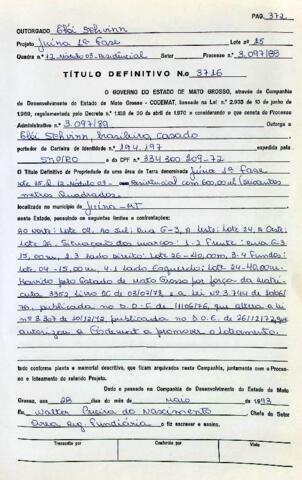 PAG. 372
OUTORGADO Elói Schvinn
Projeto Juína 1ª Fase Lote nº 25
Quadra n.º 12. Módulo 03. Residencial Setor Processo n.º 3.097/89
TÍTULO DEFINITIVO N.o 3716
O GOVERNO DO ESTADO DE MATO GROSSO, através da Companhia
de Desenvolvimento do Estado de Mato Grosso - CODEMAT, baseado na Lei n.º 2.933 de 10 de junho de
1969, regulamentada pelo Decreto n.º 1.158 de 30 de abril de 1970 e considerando o que consta do Processo
Administrativo n.º 3.097/89 Outorga a
Elói Schvinn, brasileiro, casado
portador da Carteira de Identidade n.º 194.197 expedida pela
SSP/RO e do CPF nº 334 300 209-72
O Título Definitivo de Propriedade de uma área de Terra denominada Juína 1ª Fase
lote 25, Q. 12 Módulo 03 - Residencial com 600,00m² (seiscentos
metros Quadrados.
localizada no município de Juína - MT
neste Estado, possuindo os seguintes limites e confrontações:
Ao norte: Lote 04, ao sul: Rua G-3, A leste: Lote 24, A Oeste:
Lote 26. Situação dos marcos: 1-2 Frente: Rua G-3
15,00m, 2.3 lado direito: Lote 26 - 40,00m, 3.4 Fundos:
lote 04 - 15,00m, 4.1 lado Esquerdo: Lote 24 - 40,00m.
Havido pelo Estado de Mato Grosso por força da matrí-
cula 3395 livro 2C de 03/07/79, e a Lei Nº 3.744 de 10/06/
76, publicada no D.O.E de 11/06/76, que altera a lei
nº 3.307 de 20/12/72, publicada no D.O.E. de 26/12/72, que
autorizou a Codemat a promover o loteamento.
tudo conforme planta e memorial descritivo, que ficam arquivados nesta Companhia, juntamente com o Proces-
so e loteamento do referido Projeto.
Dado e passado na Companhia de Desenvolvimento do Estado de Mato
Grosso, aos 28 dias do mês de maio de 1993
Eu Walter Pereira do Nascimento Chefe do Setor
Area Reg. Fundiária o fiz escrever e assino.
Transcrito por Conferido por Visto